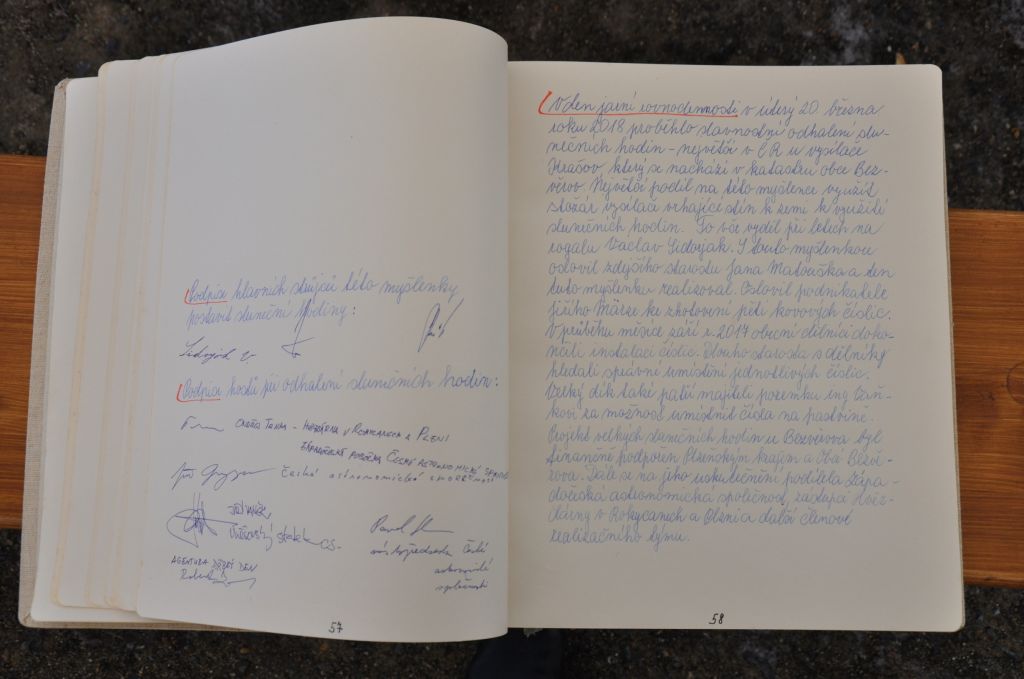 Podpisy hlavních strůjců této myšlenky
postavit sluneční hodiny:
Podpisy hostů při odhalení slunečních hodin:
- HVĚZDÁRNA V ROKYCANECH A PLZNI
ZÁPADOČESKÁ POBOČKA ČESKÉ ASTRONOMICKÉ SPOLEČNOSTI
česká astronomická společnost
AGENTURA DOBRÝ DEN
Pavel
místopředseda České
astronomické
společnosti
57
V den jarní rovnodennosti v úterý 20. března
roku 2018 proběhlo slavnostní odhalení slu-
nečních hodin - největší v ČR u vysílače
Krašov, který se nachází v katastru obce Bez-
věrov. Největší podíl na této myšlence využít
stožár vysílače vrhající stín k zemi k využití
slunečních hodin. To vše vyděl při letech na
rogalu Václav Sidorjak. S touto myšlenkou
oslovil zdejšího starostu Jana Matouška a ten
tuto myšlenku realizoval. Oslovil podnikatele
Jiřího Märze ke zhotovení pěti kovových číslic.
V průběhu měsíce září r. 2017 obecní dělníci doko-
nčili instalaci číslic. Dlouho starosta s dělníky
hledali správné umístění jednotlivých číslic.
Velký dík také patří majiteli pozemku ing.
kovi za možnost umístnit čísla na pastvině.
Projekt velkých slunečních hodin u Bezvěrova byl
finančně podpořen Plzeňským krajem a Obcí Bezvě-
rova. Dále se na jeho uskutečnění podílela Zápa-
dočeská astronomická společnost, zástupci Hvěz-
dárny v Rokycanech a Plzni a další členové
realizačního týmu.
58